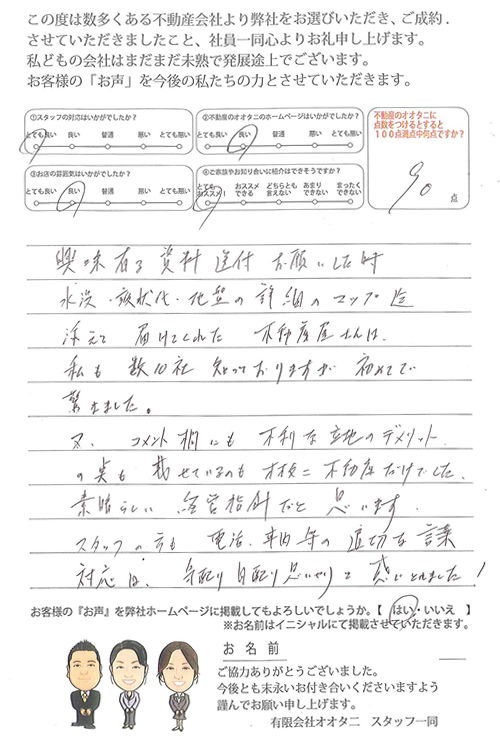 この度は数多くある不動産会社より弊社をお選びいただき、ご成約.
させていただきましたこと、社員一同心よりお礼申し上げます。
私どもの会社はまだまだ未熟で発展途上でございます。
お客様の「お声」を今後の私たちの力とさせていただきます。
①スタッフの対応はいかがでしたか？
とても良い 良い 普通 悪い とても悪い
②不動産のオオタニのホームページはいかがでしたか？
とても良い 良い 普通 悪い とても悪い
③お店の雰囲気はいかがでしたか？
とても良い 良い 普通 悪い とても悪い
④ご家族やお知り合いに紹介はできそうですか？
とてもおススメ！ おススメできる どちらとも言えない あまりできない まったくできない
不動産のオオタニに
点数をつけるとすると
１００点満点中何点ですか？
90 点
興味有る資料送付お願いした時
水災・液状化・地盤の詳細のマップ迄
添えて届けてくれた不動産屋さんは、
私も数10社知っておりますが初めてで
驚きました。
又、コメント欄にも不利な立地のデメリット
の点も載せているのもオオタニ不動産だけでした。
素晴らしい経営指針だと思います。
スタッフの方も電話、車内等の適切な言葉
対応は、気配り目配り思いやりと感じとれました！
お客様の『お声』を弊社ホームページに掲載してもよろしいでしょうか。【 はい・いいえ 】
※お名前はイニシャルにて掲載させていただきます。
お 名 前
ご協力ありがとうございました。
今後とも末永いお付き合いくださいますよう
謹んでお願い申し上げます。
有限会社オオタニ スタッフ一同